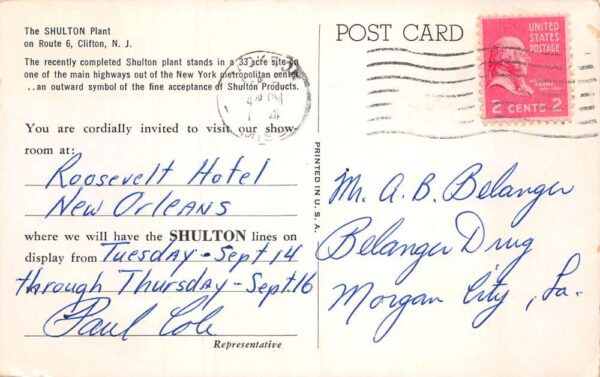 The SHULTON Plant
on Route 6, Clifton, N. J.
The recently completed Shulton plant stands in a 33 acre site on
one of the main highways out of the New York metropolitan center
...an outward symbol of the fine acceptance of Shulton Products.
You are cordially invited to visit our show-
room at:
Roosevelt Hotel
New Orleans
where we will have the SHULTON lines on
display from Tuesday - Sept 14
through Thursday - Sept. 16
Paul Cole
Representative
PRINTED IN U. S. A.
POST CARD
UNITED
STATES
POSTAGE
2 CENTS 2
Mr. A. B. Belanger
Belanger Drug
Morgan City, La.